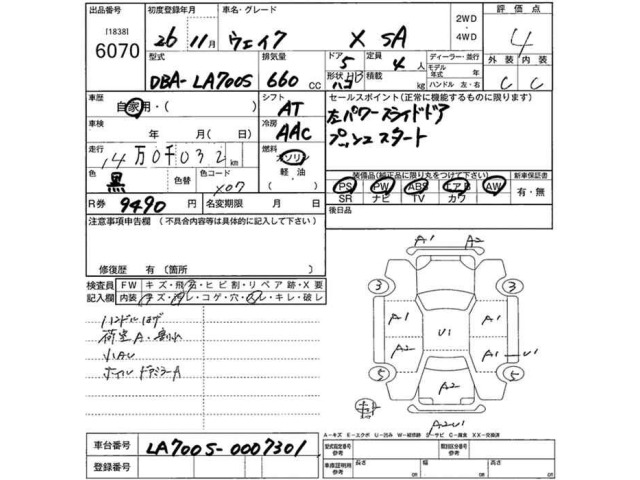 出品番号 初度登録年月 車名・グレード 2WD ・ 4WD 評価点
[1838]
6070 26 11月 ウェイク X SA 4
型式 排気量 ドア 定員 ディーラー・並行 外装 内装
DBA-LA700S 660 CC 5 4人 モデル年式 年 C C
形状 積載 kg ハンドル 左・右
車歴 自家用・( ) シフト AT セールスポイント(正常に機能するものに限ります)
車検 年 月(日) 冷房 AAC 左パワースライドドア
プッシュスタート
走行 14万0千032km 燃料 ガソリン
軽油
色 黒 色替 色コード X07 ( )
装備品(純正品に限り丸をつけて下さい) 新車保証書
PS PW ABS エアB AW 有・無
SR ナビ TV カワ
R券 9490円 名変期限 月 日 後日品
注意事項申告欄 (不具合内容等は具体的に記入して下さい)
修復歴 有(箇所 )
検査員記入欄 FW キズ・飛石・ヒビ割・リペア跡・X要
内装 キズ・汚レ・コゲ・穴・スレ・キレ・破レ
ハンドルはげ
荷室A・割れ
小AU
ホイルドアミラーA
A1 A2
3 3
A1 A1
U1
A2 A1 U1
5 5
A2
A2U1
A-キズ E-エクボ U-凹み W-補修跡 S-サビ C-腐食 XX-交換済
車台番号 LA700S-0007301
登録番号
型式指定番号 参考 類別区分番号 参考
車庫証明用 参考 長さ cm 幅 cm 高さ cm